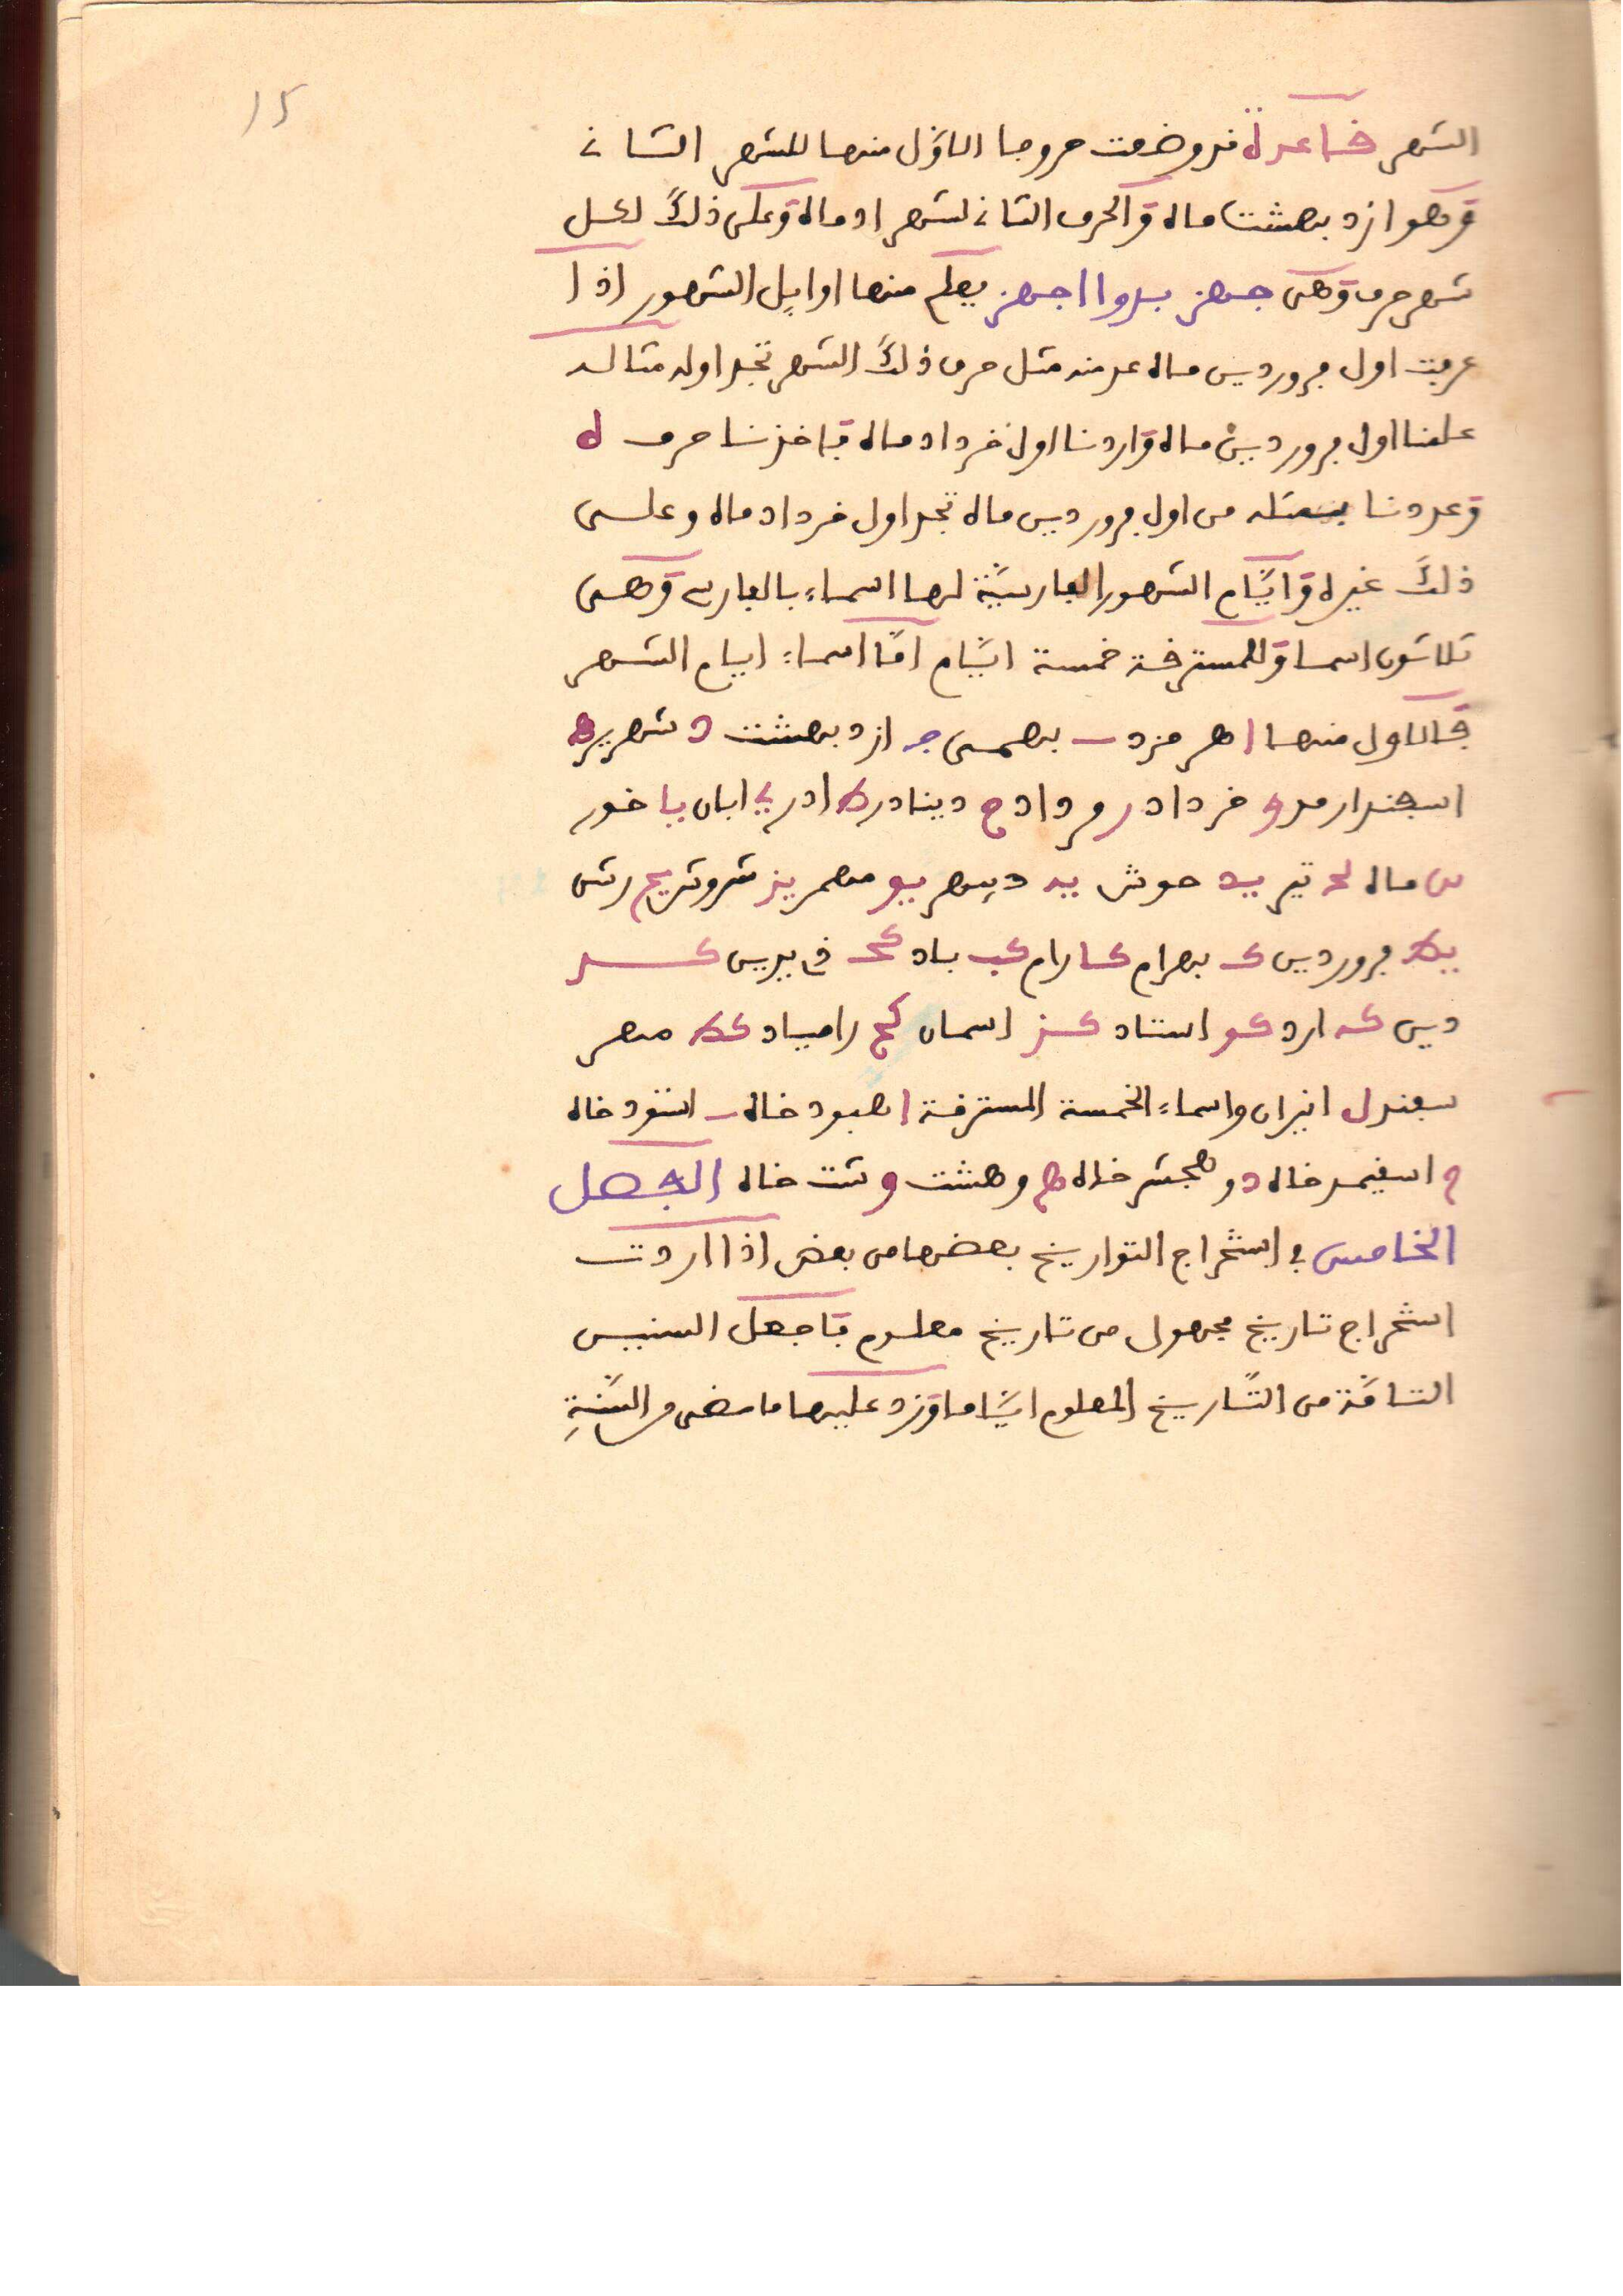 15
الشهر قاعدة قد وضعت حروفا الاوّل منها للشهر الثاني
وهو ازدبهشت ماه والحرف الثاني لشهر اد ماه وعلى ذلك لكل
شهر حرف وهى جهز بدوا اجهز يعلم منها اوايل الشهور اذا
عرفت اول فروردين ماه عد منه مثل حرف ذلك الشهر تجد اوله مثاله
علمنا اول فروردين ماه واردنا اول خرداد ماه فاخذنا حرف ه
وعددنا بمثله من اول فروردين ماه تجد اول خرداد ماه وعلى
ذلك غيره وايّام الشهور الفارسيّة لها اسماء بالفارسي وهى
ثلاثون اسما وللمسترقة خمسة ايّام امّا اسماء ايام الشهر
فالاول منها ا هرمزد ب بهمن ج ازدبهشت د شهرير ه
اسفندارمد و خرداد ر مرداد ح دينادر ط ادر ي ابان يا خور
يب ماه يج تير يد جوش يه ديمهر يو مهر يز شروش يح رشن
يط فروردين ك بهرام كا رام كب باد كج فى بدين كد
دين كه ارد كو استاد كز اسمان كح رامياد كط مهر
سفند ل انيران واسماء الخمسة المسترقة ا هبود خاه ب اشنود خاه
ج اسفيمد خاه د و هجشر خاه ه وهشت و شت خاه الفصل
الخامس في استخراج التواريخ بعضها من بعض اذا اردت
استخراج تاريخ مجهول من تاريخ معلوم فاجعل السنين
التامّة من التّاريخ المعلوم ايّاما وزد عليها ما مضى من السّنةِ